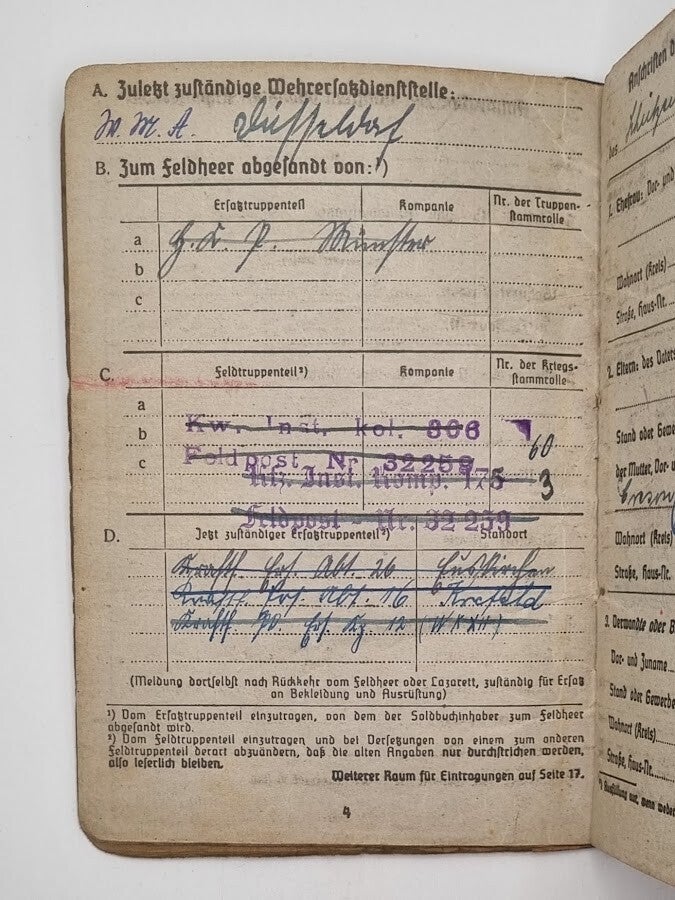 A. Zuletzt zuständige Wehrersatzdienststelle:
W. M. A. Düsseldorf
B. Zum Feldheer abgesandt von:¹)
Ersatztruppenteil Kompanie Nr. der Truppen-
stammrolle
a
b
c
H. K. P. Münster
C. Feldtruppenteil²) Kompanie Nr. der Kriegs-
stammrolle
a
b Kw. Inst. kol. 806
c Feldpost Nr 32259 60
Kfz. Inst. Komp. 175 3
Feldpost - Nr. 32 259
D. Jetzt zuständiger Ersatztruppenteil²) Standort
Kraftf. Ers. Abt. 26 Euskirchen
Kraftf. Ers. Abt. 16 Krefeld
Kraftf. Ers. 12
(Meldung dortselbst nach Rückkehr vom Feldheer oder Lazarett, zuständig für Ersatz
an Bekleidung und Ausrüstung)
¹) Vom Ersatztruppenteil einzutragen, von dem der Soldbuchinhaber zum Feldheer
abgesandt wird.
²) Vom Feldtruppenteil einzutragen und bei Versetzungen von einem zum anderen
Feldtruppenteil derart abzuändern, daß die alten Angaben nur durchstrichen werden,
also leserlich bleiben.
Weiterer Raum für Eintragungen auf Seite 17.
4
Anschriften
1. Ehefrau: Vor- und
Wohnort (Kreis)
Straße, Haus-Nr.
2. Eltern: des Vaters
Stand oder Gewe
der Mutter, Vor- u
Wohnort (Kreis)
Straße, Haus-Nr.
3. Verwandte oder B
Vor- und Zuname
Stand oder Gewerbe
Wohnort (Kreis)
Straße, Haus-Nr.